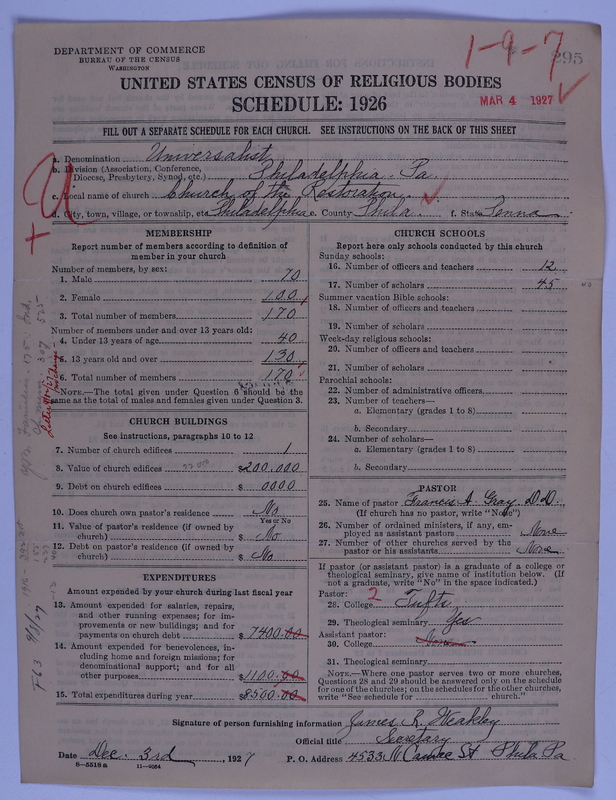 DEPARTMENT OF COMMERCE
BUREAU OF THE CENSUS
WASHINGTON
1-9-7
295
UNITED STATES CENSUS OF RELIGIOUS BODIES
SCHEDULE: 1926
MAR 4 1927
FILL OUT A SEPARATE SCHEDULE FOR EACH CHURCH. SEE INSTRUCTIONS ON THE BACK OF THIS SHEET
a. Denomination Universalist
b. Division (Association, Conference, Diocese, Presbytery, Synod, etc.) Philadelphia. Pa.
c. Local name of church Church of the Restoration.
d. City, town, village, or township, etc. Philadelphia e. County Phila. f. State Penna
MEMBERSHIP
Report number of members according to definition of
member in your church
Number of members, by sex:
1. Male 70
2. Female 100
3. Total number of members 170
Number of members under and over 13 years old:
4. Under 13 years of age 40
5. 13 years old and over 130
6. Total number of members 170
NOTE.—The total given under Question 6 should be the
same as the total of males and females given under Question 3.
CHURCH BUILDINGS
See instructions, paragraphs 10 to 12
7. Number of church edifices 1
8. Value of church edifices $200.000
9. Debt on church edifices $ 0000
10. Does church own pastor's residence No
Yes or No
11. Value of pastor's residence (if owned by
church) $ No
12. Debt on pastor's residence (if owned by
church) $ No
EXPENDITURES
Amount expended by your church during last fiscal year
13. Amount expended for salaries, repairs,
and other running expenses; for im-
provements or new buildings; and for
payments on church debt $ 7400.00
14. Amount expended for benevolences, in-
cluding home and foreign missions; for
denominational support; and for all
other purposes $ 1100.00
15. Total expenditures during year $8500.00
CHURCH SCHOOLS
Report here only schools conducted by this church
Sunday schools:
16. Number of officers and teachers 12
17. Number of scholars 45
Summer vacation Bible schools:
18. Number of officers and teachers
19. Number of scholars
Week-day religious schools:
20. Number of officers and teachers
21. Number of scholars
Parochial schools:
22. Number of administrative officers
23. Number of teachers—
a. Elementary (grades 1 to 8)
b. Secondary
24. Number of scholars—
a. Elementary (grades 1 to 8)
b. Secondary
PASTOR
25. Name of pastor Francis A. Gray. D.D.
(If church has no pastor, write "No")
26. Number of ordained ministers, if any, em-
ployed as assistant pastors None
27. Number of other churches served by the
pastor or his assistants None
If pastor (or assistant pastor) is a graduate of a college or
theological seminary, give name of institution below. (If
not a graduate, write "No" in the space indicated.)
Pastor: 2
28. College Tufts
29. Theological seminary Yes
Assistant pastor:
30. College None
31. Theological seminary
NOTE.—Where one pastor serves two or more churches,
Questions 28 and 29 should be answered only on the schedule
for one of the churches; on the schedules for the other churches,
write "See schedule for church."
Signature of person furnishing information James R. Weakley
Official title Secretary
Date Dec. 3rd, 1927 P. O. Address 4535 N Camac St Phila Pa
8—5518a 11—9054